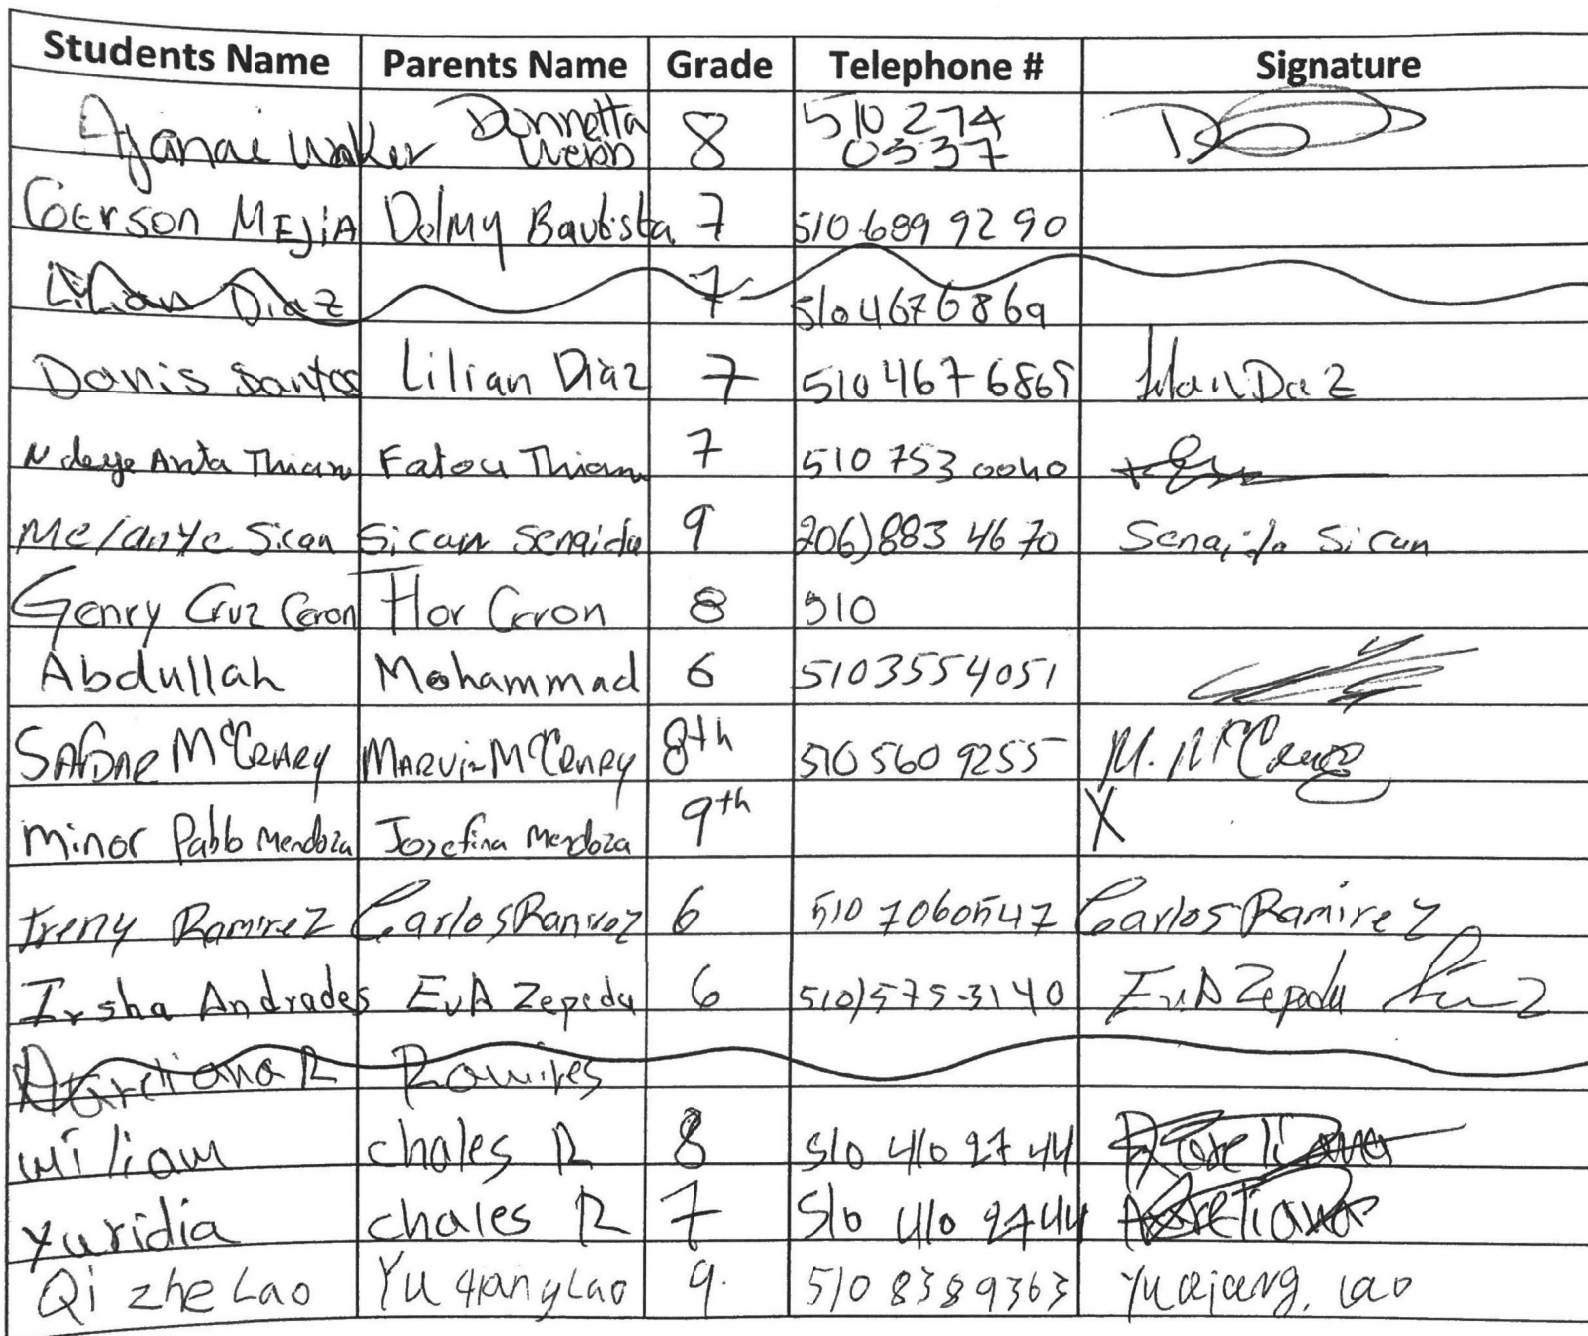 Students Name Parents Name Grade Telephone # Signature
Ajanai Walker Donnetta Webb 8 510 274 0337
Gerson MEJiA Dolmy Bautista 7 510 689 92 90
Lilian Diaz 7 510 467 6869
Danis Santos Lilian Diaz 7 510 467 6869 Lilian Diaz
Ndeye Anta Thiam Fatou Thiam 7 510 753 0040
Melanye Sican Sican Senaida 9 206)883 4670 Senaida Sican
Genry Cruz Ceron Flor Ceron 8 510
Abdullah Mohammad 6 5103554051
McCrary Marvin McCrary 8th 510 560 9255 M. McCrary
Minor Pablo Mendoza Josefina Mendoza 9th X
Ramirez Carlos Ramirez 6 510 7060547 Carlos Ramirez
Irsha Andrades EvA Zepeda 6 510)575-3140 EvA Zepeda
R Ramires
william chales R 8 510 410 2744
Yuridia chales R 7 510 410 2744
Qi zhe Lao Yu qiang Lao 9. 510 838 9363 Yu qiang. Lao